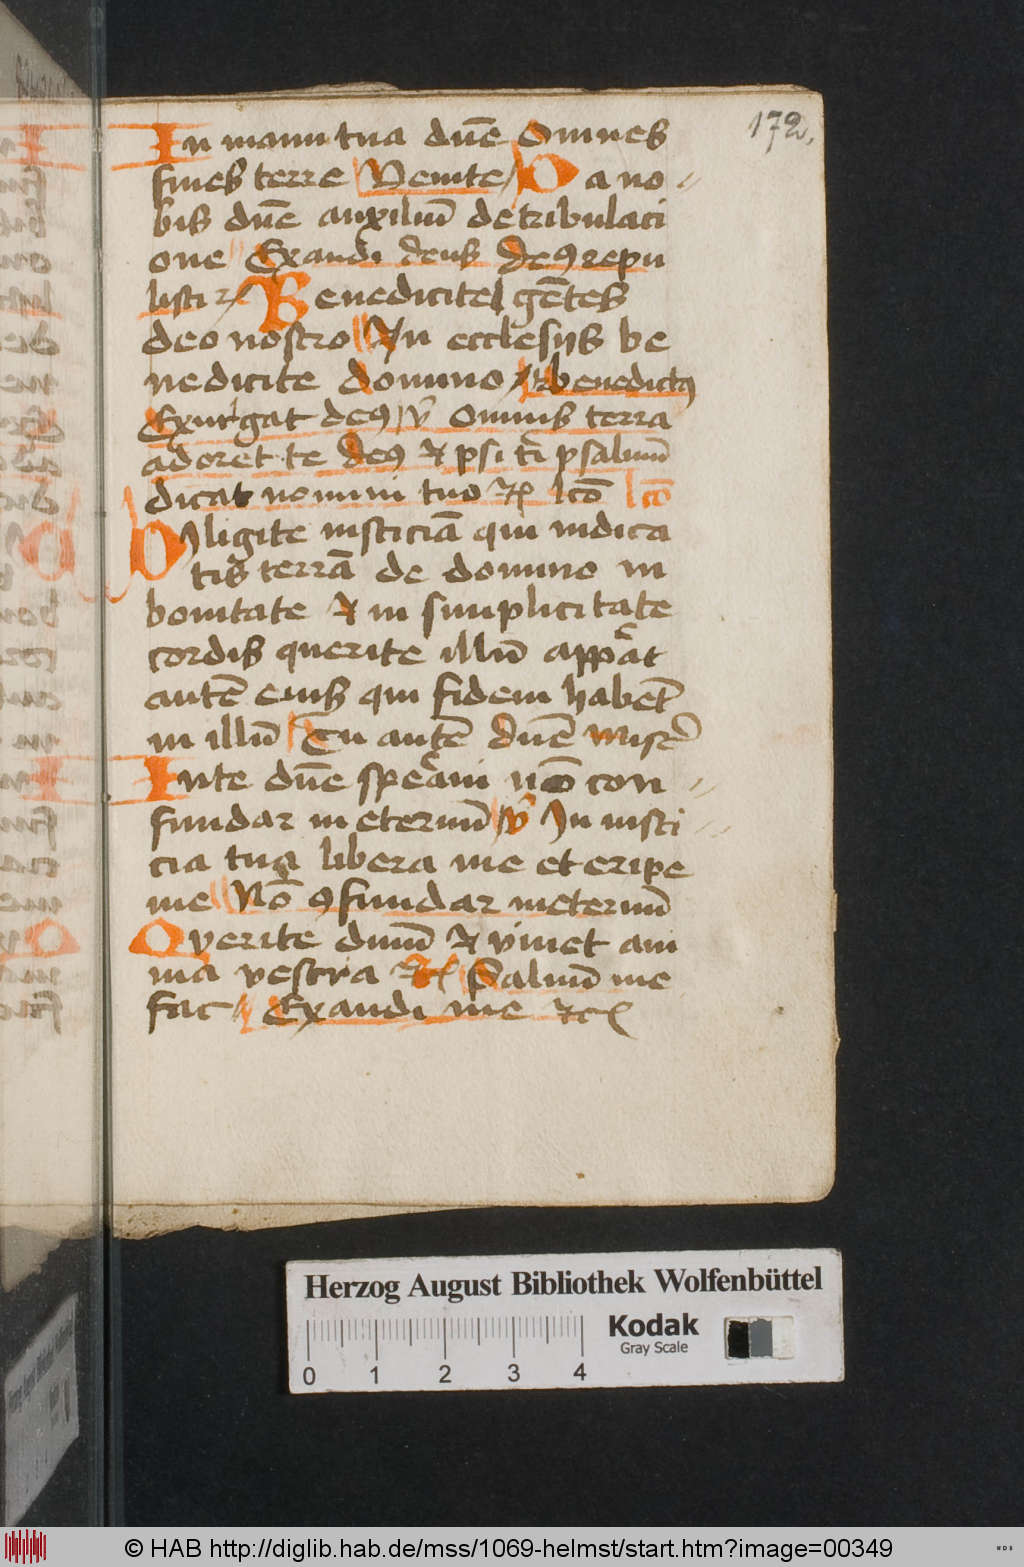 172.
In manu tua dn̄e Omnes
fines terre Venite Da no
bis dn̄e auxiliū de tribulaci
one Exaudi deus Deꝰ repu
listi Benedicite gētes
deo nostro In ecclesijs be
nedicite domino benedictꝰ
Exurgat deꝰ v̄ Omnis terra
adoret te deꝰ ⁊ psi t̄ psalmū
dicat nomini tuo ⁊c lcō lcō
Diligite iusticiā qui iudica
tis terrā de domino in
bonitate ⁊ in simplicitate
cordis querite illū appāt
autē eius qui fidem habēt
in illū Tu autē dn̄e miser
In te dn̄e speͣui nō con
fundar in eternū v̄ In iusti
cia tua libera me et eripe
me Nō ꝯfundar in eternū
Qverite dnm̄ ⁊ viuet ani
ma vestra ⁊c Saluū me
fac Exaudi me ⁊c
Herzog August Bibliothek Wolfenbüttel
Kodak
Gray Scale
0 1 2 3 4
© HAB http://diglib.hab.de/mss/1069-helmst/start.htm?image=00349